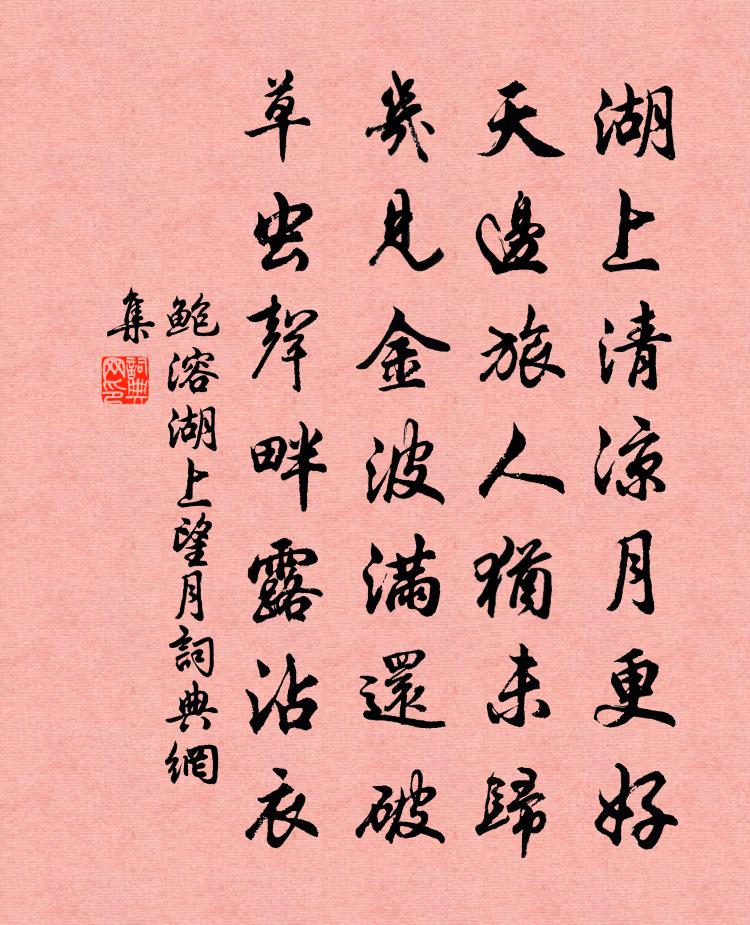 湖上清涼月更好
天邊旅人猶未歸
幾見金波滿還破
草虫聲畔露沾衣
鮑溶湖上望月詞典網
集
詞典
网印